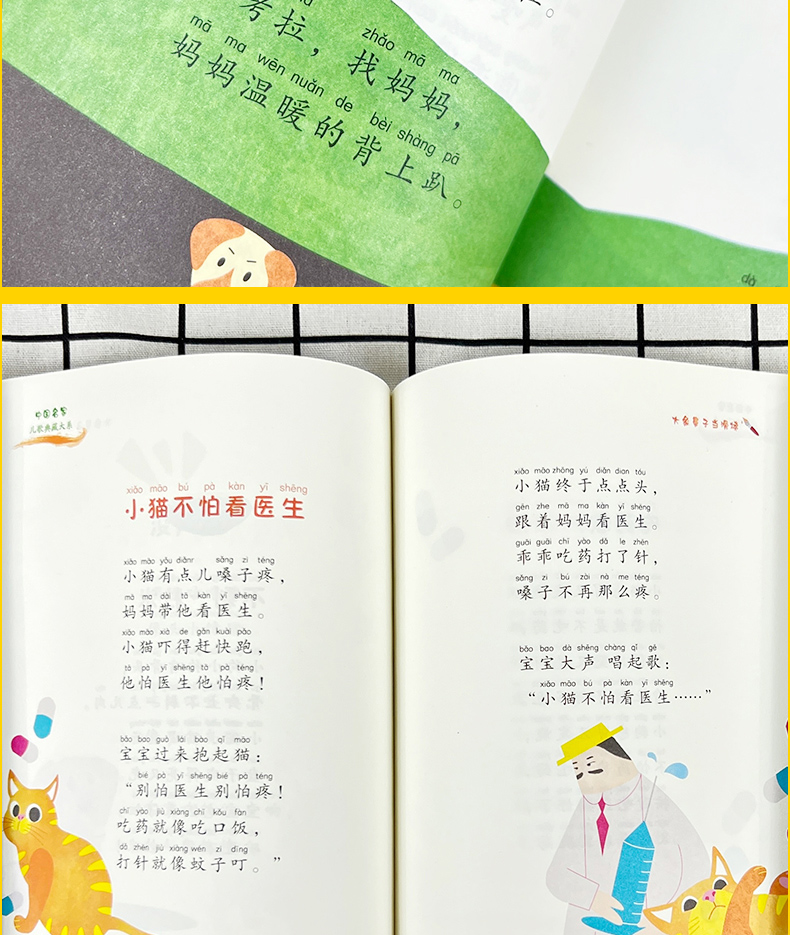 zhǎo mā ma
考拉，找妈妈，
mā ma wēn nuǎn de bèi shàng pā
妈妈温暖的背上趴。
中国名家
儿歌典藏大系
xiǎo māo bú pà kàn yī shēng
小猫不怕看医生
xiǎo māo yǒu diǎnr sǎng zi téng
小猫有点儿嗓子疼，
mā ma dài tā kàn yī shēng
妈妈带他看医生。
xiǎo māo xià de gǎn kuài pǎo
小猫吓得赶快跑，
tā pà yī shēng tā pà téng
他怕医生他怕疼！
bǎo bao guò lái bào qǐ māo
宝宝过来抱起猫：
bié pà yī shēng bié pà téng
“别怕医生别怕疼！
chī yào jiù xiàng chī kǒu fàn
吃药就像吃口饭，
dǎ zhēn jiù xiàng wén zi dīng
打针就像蚊子叮。”
xiǎo māo zhōng yú diǎn dian tóu
小猫终于点点头，
gēn zhe mā ma kàn yī shēng
跟着妈妈看医生。
guāi guāi chī yào dǎ le zhēn
乖乖吃药打了针，
sǎng zi bú zài nà me téng
嗓子不再那么疼。
bǎo bao dà shēng chàng qǐ gē
宝宝大声 唱起歌：
xiǎo māo bú pà kàn yī shēng
“小猫不怕看医生……”